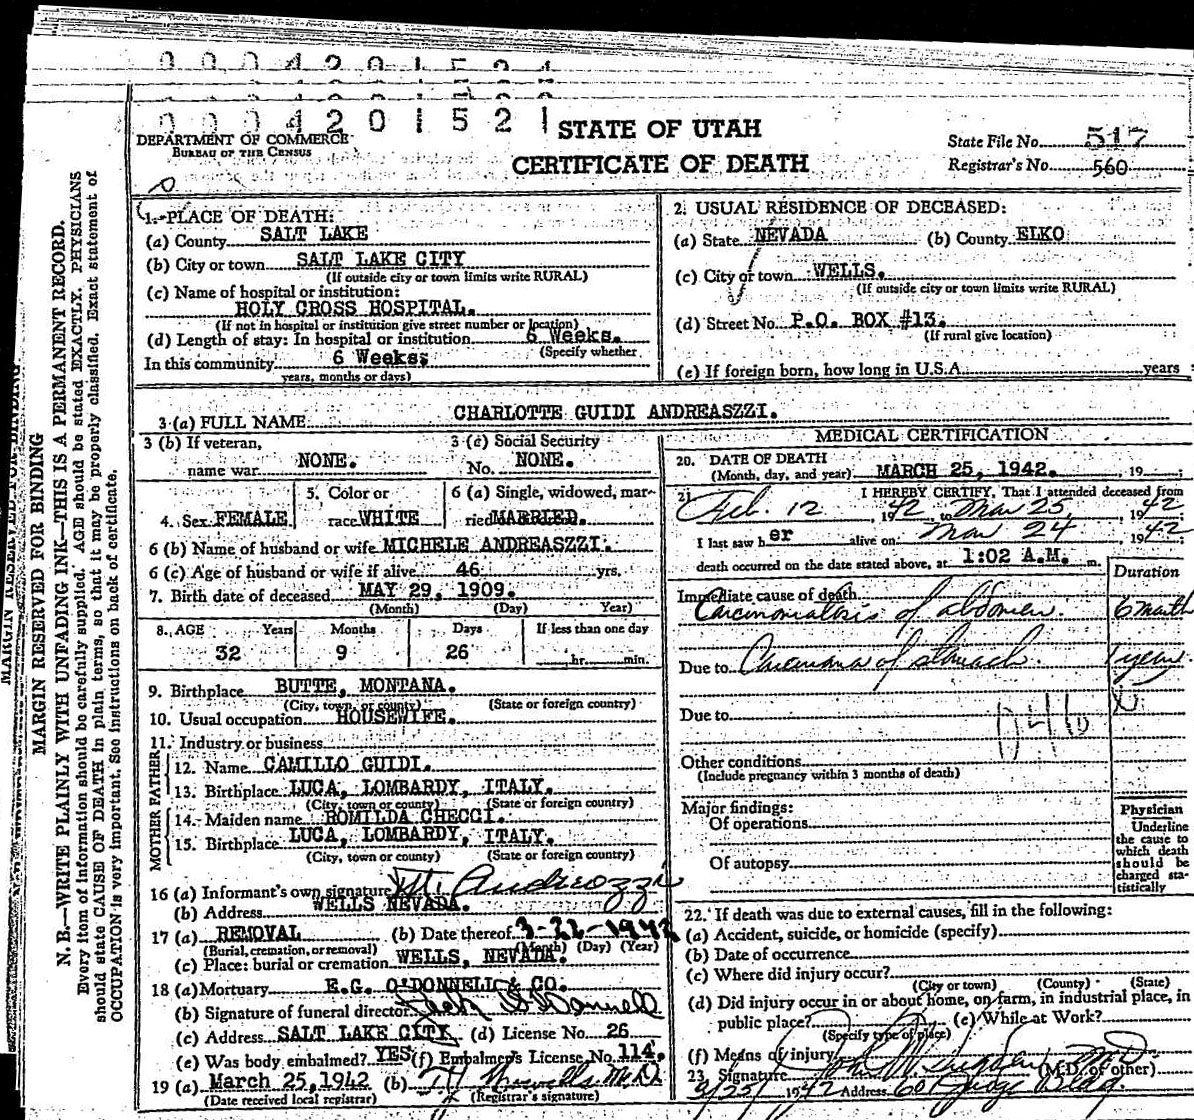 0004201521
STATE OF UTAH
CERTIFICATE OF DEATH
DEPARTMENT OF COMMERCE
BUREAU OF THE CENSUS
State File No. 517
Registrar's No. 560
1. PLACE OF DEATH:
(a) County SALT LAKE
(b) City or town SALT LAKE CITY
(If outside city or town limits write RURAL)
(c) Name of hospital or institution:
HOLY CROSS HOSPITAL.
(If not in hospital or institution give street number or location)
(d) Length of stay: In hospital or institution 6 Weeks.
(Specify whether
In this community 6 Weeks;
years, months or days)
2. USUAL RESIDENCE OF DECEASED:
(a) State NEVADA (b) County ELKO
(c) City or town WELLS.
(If outside city or town limits write RURAL)
(d) Street No. P.O. BOX #13.
(If rural give location)
(e) If foreign born, how long in U.S.A. years
3 (a) FULL NAME CHARLOTTE GUIDI ANDREASZZI.
3 (b) If veteran, name war NONE.
3 (c) Social Security No. NONE.
4. Sex FEMALE
5. Color or race WHITE
6 (a) Single, widowed, married MARRIED.
6 (b) Name of husband or wife MICHELE ANDREASZZI.
6 (c) Age of husband or wife if alive 46 yrs.
7. Birth date of deceased MAY 29, 1909.
(Month) (Day) Year)
8. AGE Years Months Days If less than one day
32 9 26 hr. min.
9. Birthplace BUTTE, MONTANA.
(City, town, or county) (State or foreign country)
10. Usual occupation HOUSEWIFE.
11. Industry or business
FATHER
12. Name CAMILLO GUIDI.
13. Birthplace LUCA, LOMBARDY, ITALY.
(City, town or county) (State or foreign country)
MOTHER
14. Maiden name ROMILDA CHECCI.
15. Birthplace LUCA, LOMBARDY, ITALY.
(City, town or county) (State or foreign country)
16 (a) Informant's own signature M. Andreozzi
(b) Address WELLS NEVADA.
17 (a) REMOVAL (b) Date thereof 3-22-1942
(Burial, cremation, or removal) (Month) (Day) (Year)
(c) Place: burial or cremation WELLS, NEVADA.
18 (a) Mortuary E.G. O'DONNELL & CO.
(b) Signature of funeral director O'Donnell
(c) Address SALT LAKE CITY (d) License No. 26
(e) Was body embalmed? YES (f) Embalmer's License No. 114.
19 (a) March 25, 1942 (b) M.D.
(Date received local registrar) (Registrar's signature)
MEDICAL CERTIFICATION
20. DATE OF DEATH
(Month, day, and year) MARCH 25, 1942. , 19 ;
21. I HEREBY CERTIFY, That I attended deceased from
Feb. 12, 1942 to Mar 25, 1942
I last saw her alive on Mar 24, 1942
death occurred on the date stated above, at 1:02 A.M. m.
Duration
Immediate cause of death
Carcinomatosis of abdomen. 6 months
Due to Carcinoma of stomach. 1 year
Due to
046b
Other conditions
(Include pregnancy within 3 months of death)
Major findings:
Of operations
Of autopsy
Physician
Underline
the cause to
which death
should be
charged sta-
tistically
22. If death was due to external causes, fill in the following:
(a) Accident, suicide, or homicide (specify)
(b) Date of occurrence
(c) Where did injury occur?
(City or town) (County) (State)
(d) Did injury occur in or about home, on farm, in industrial place, in
public place? (e) While at Work?
(Specify type of place)
(f) Means of injury
23. Signature M.D. (M.D. or other)
3/25/1942 Address Judge Bldg.
MARGIN RESERVED FOR BINDING
N. B.—WRITE PLAINLY WITH UNFADING INK—THIS IS A PERMANENT RECORD.
Every item of information should be carefully supplied. AGE should be stated EXACTLY. PHYSICIANS
should state CAUSE OF DEATH in plain terms, so that it may be properly classified. Exact statement of
OCCUPATION is very important. See instructions on back of certificate.